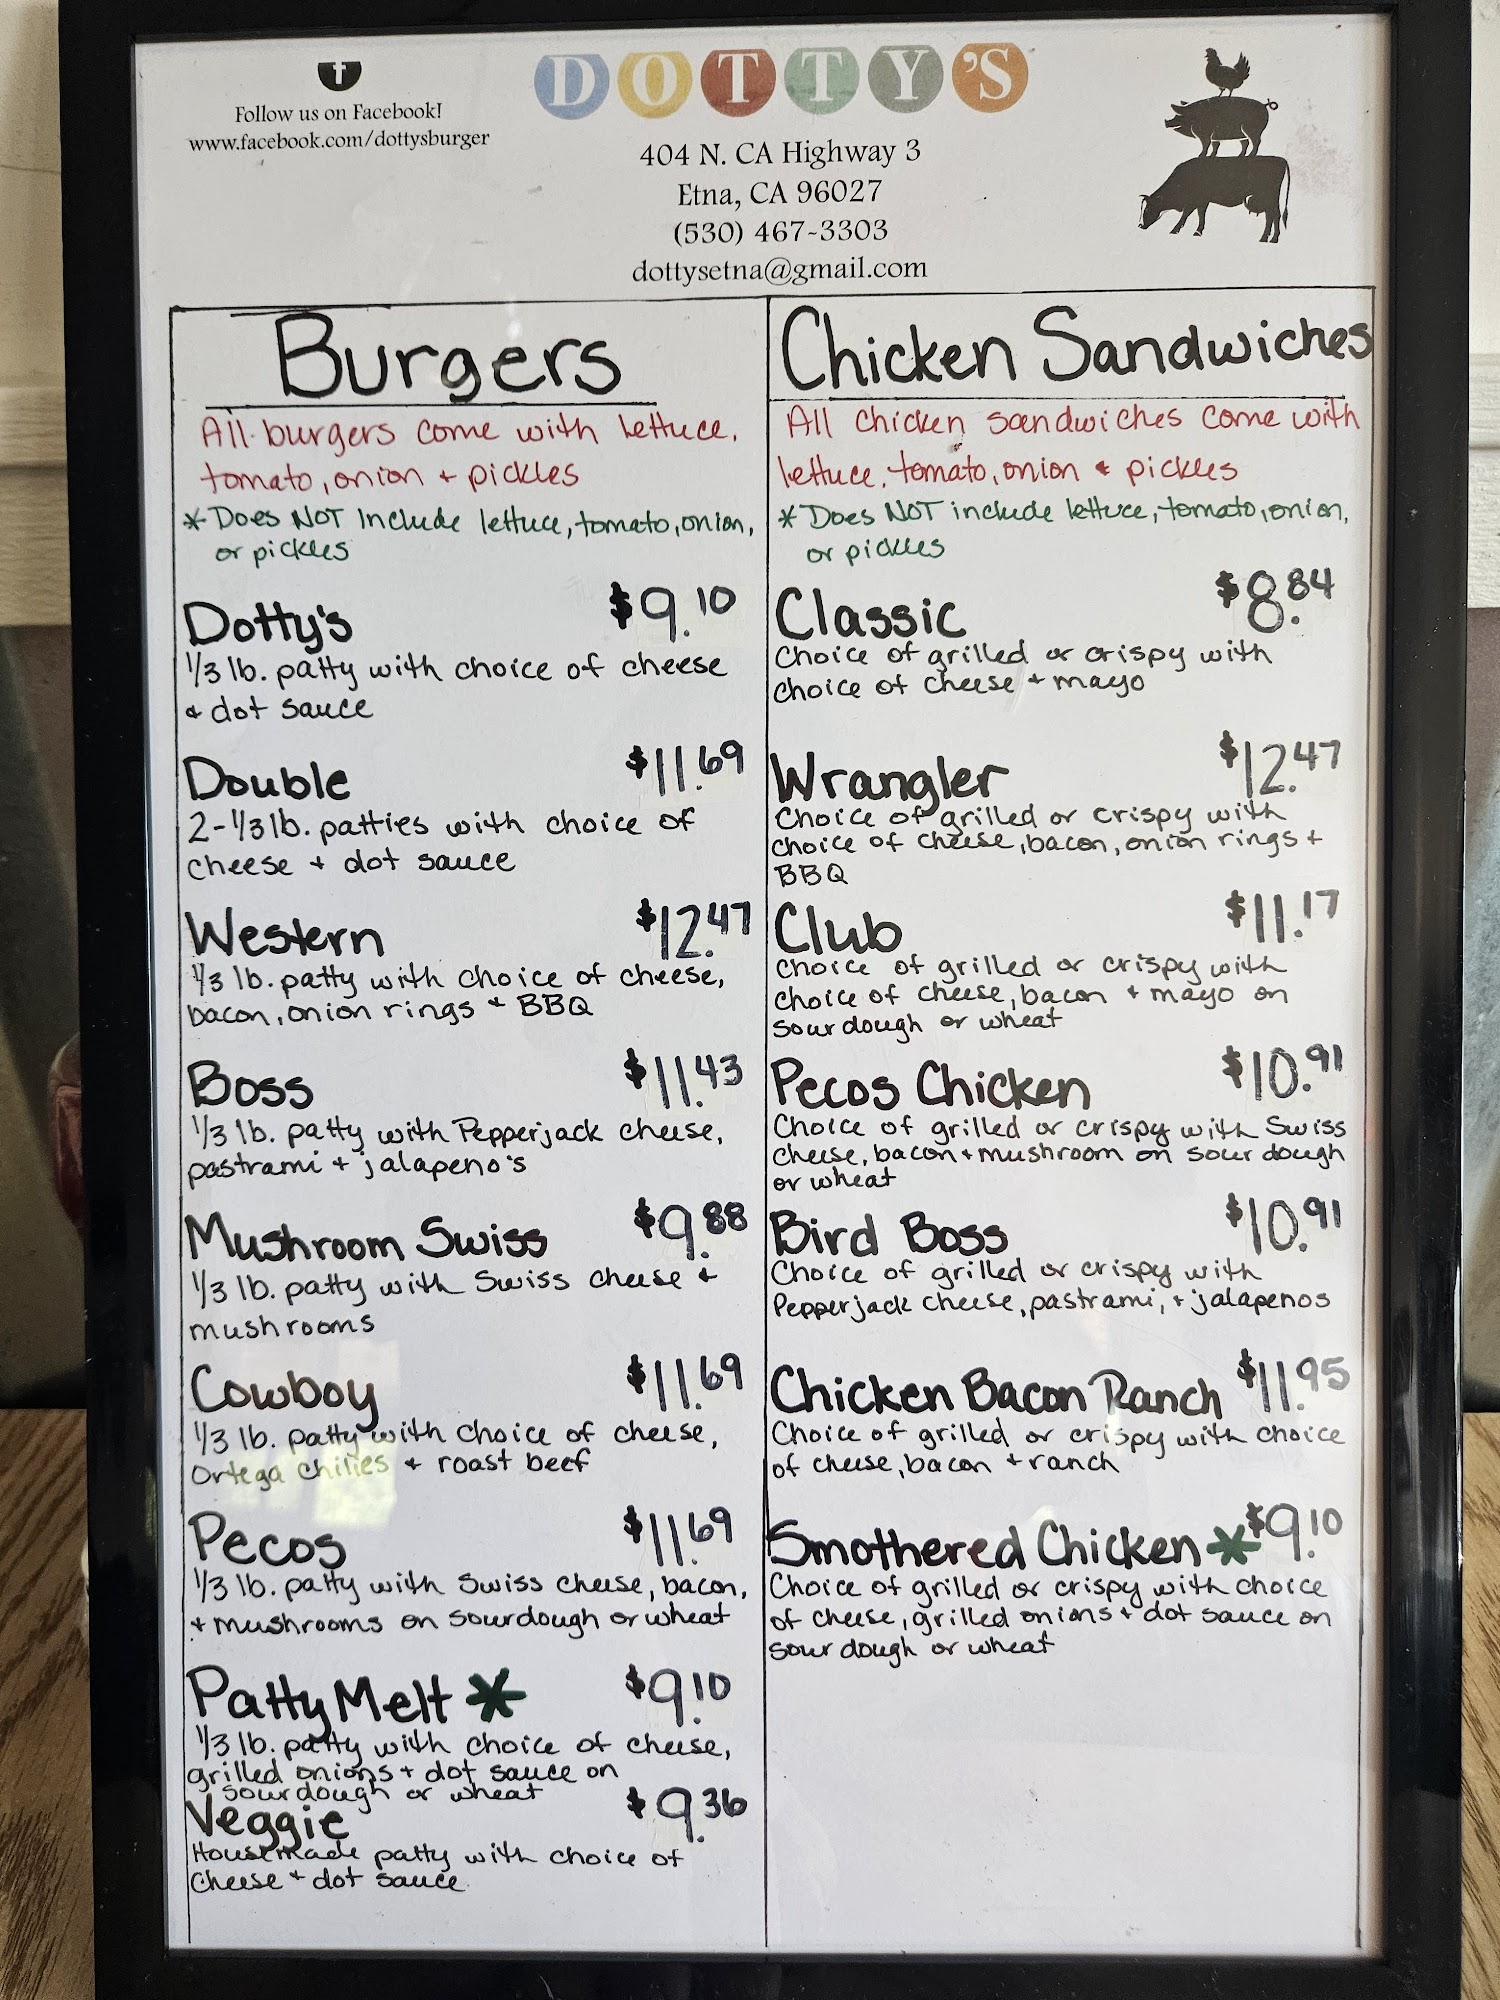 f
Follow us on Facebook!
www.facebook.com/dottysburger
DOTTY'S
404 N. CA Highway 3
Etna, CA 96027
(530) 467-3303
dottysetna@gmail.com
Burgers
All burgers come with lettuce,
tomato, onion + pickles
* Does NOT Include lettuce, tomato, onion,
or pickles
Dotty's $9.10
1/3 lb. patty with choice of cheese
& dot sauce
Double $11.69
2-1/3 lb. patties with choice of
cheese + dot sauce
Western $12.47
1/3 lb. patty with choice of cheese,
bacon, onion rings + BBQ
Boss $11.43
1/3 lb. patty with Pepperjack cheese,
pastrami + jalapeno's
Mushroom Swiss $9.88
1/3 lb. patty with Swiss cheese +
mushrooms
Cowboy $11.69
1/3 lb. patty with choice of cheese,
Ortega chilies + roast beef
Pecos $11.69
1/3 lb. patty with Swiss cheese, bacon,
+ mushrooms on sourdough or wheat
Patty Melt * $9.10
1/3 lb. patty with choice of cheese,
grilled onions + dot sauce on
sourdough or wheat
Veggie $9.36
Housemade patty with choice of
cheese + dot sauce
Chicken Sandwiches
All chicken sandwiches come with
lettuce, tomato, onion & pickles
* Does NOT include lettuce, tomato, onion,
or pickles
Classic $8.84
Choice of grilled or crispy with
choice of cheese + mayo
Wrangler $12.47
Choice of grilled or crispy with
choice of cheese, bacon, onion rings +
BBQ
Club $11.17
choice of grilled or crispy with
choice of cheese, bacon + mayo on
sourdough or wheat
Pecos Chicken $10.91
Choice of grilled or crispy with Swiss
cheese, bacon + mushroom on sourdough
or wheat
Bird Boss $10.91
Choice of grilled or crispy with
Pepperjack cheese, pastrami, + jalapenos
Chicken Bacon Ranch $11.95
Choice of grilled or crispy with choice
of cheese, bacon + ranch
Smothered Chicken * $9.10
Choice of grilled or crispy with choice
of cheese, grilled onions + dot sauce on
sourdough or wheat